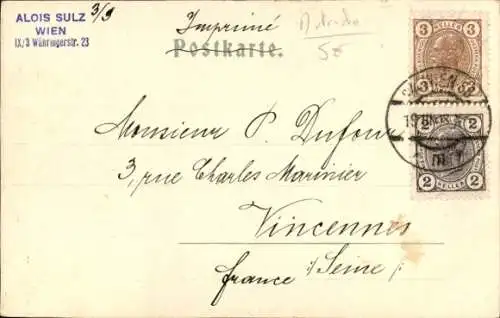 ALOIS SULZ
WIEN
IX/3 Währingerstr. 23
3/9
Imprimé
Postkarte.
5€
3 3
HELLER
3 3
WIEN
2 2
2 HELLER 2
Monsieur P. Dufour
3, rue Charles Marinier
Vincennes
france /Seine/